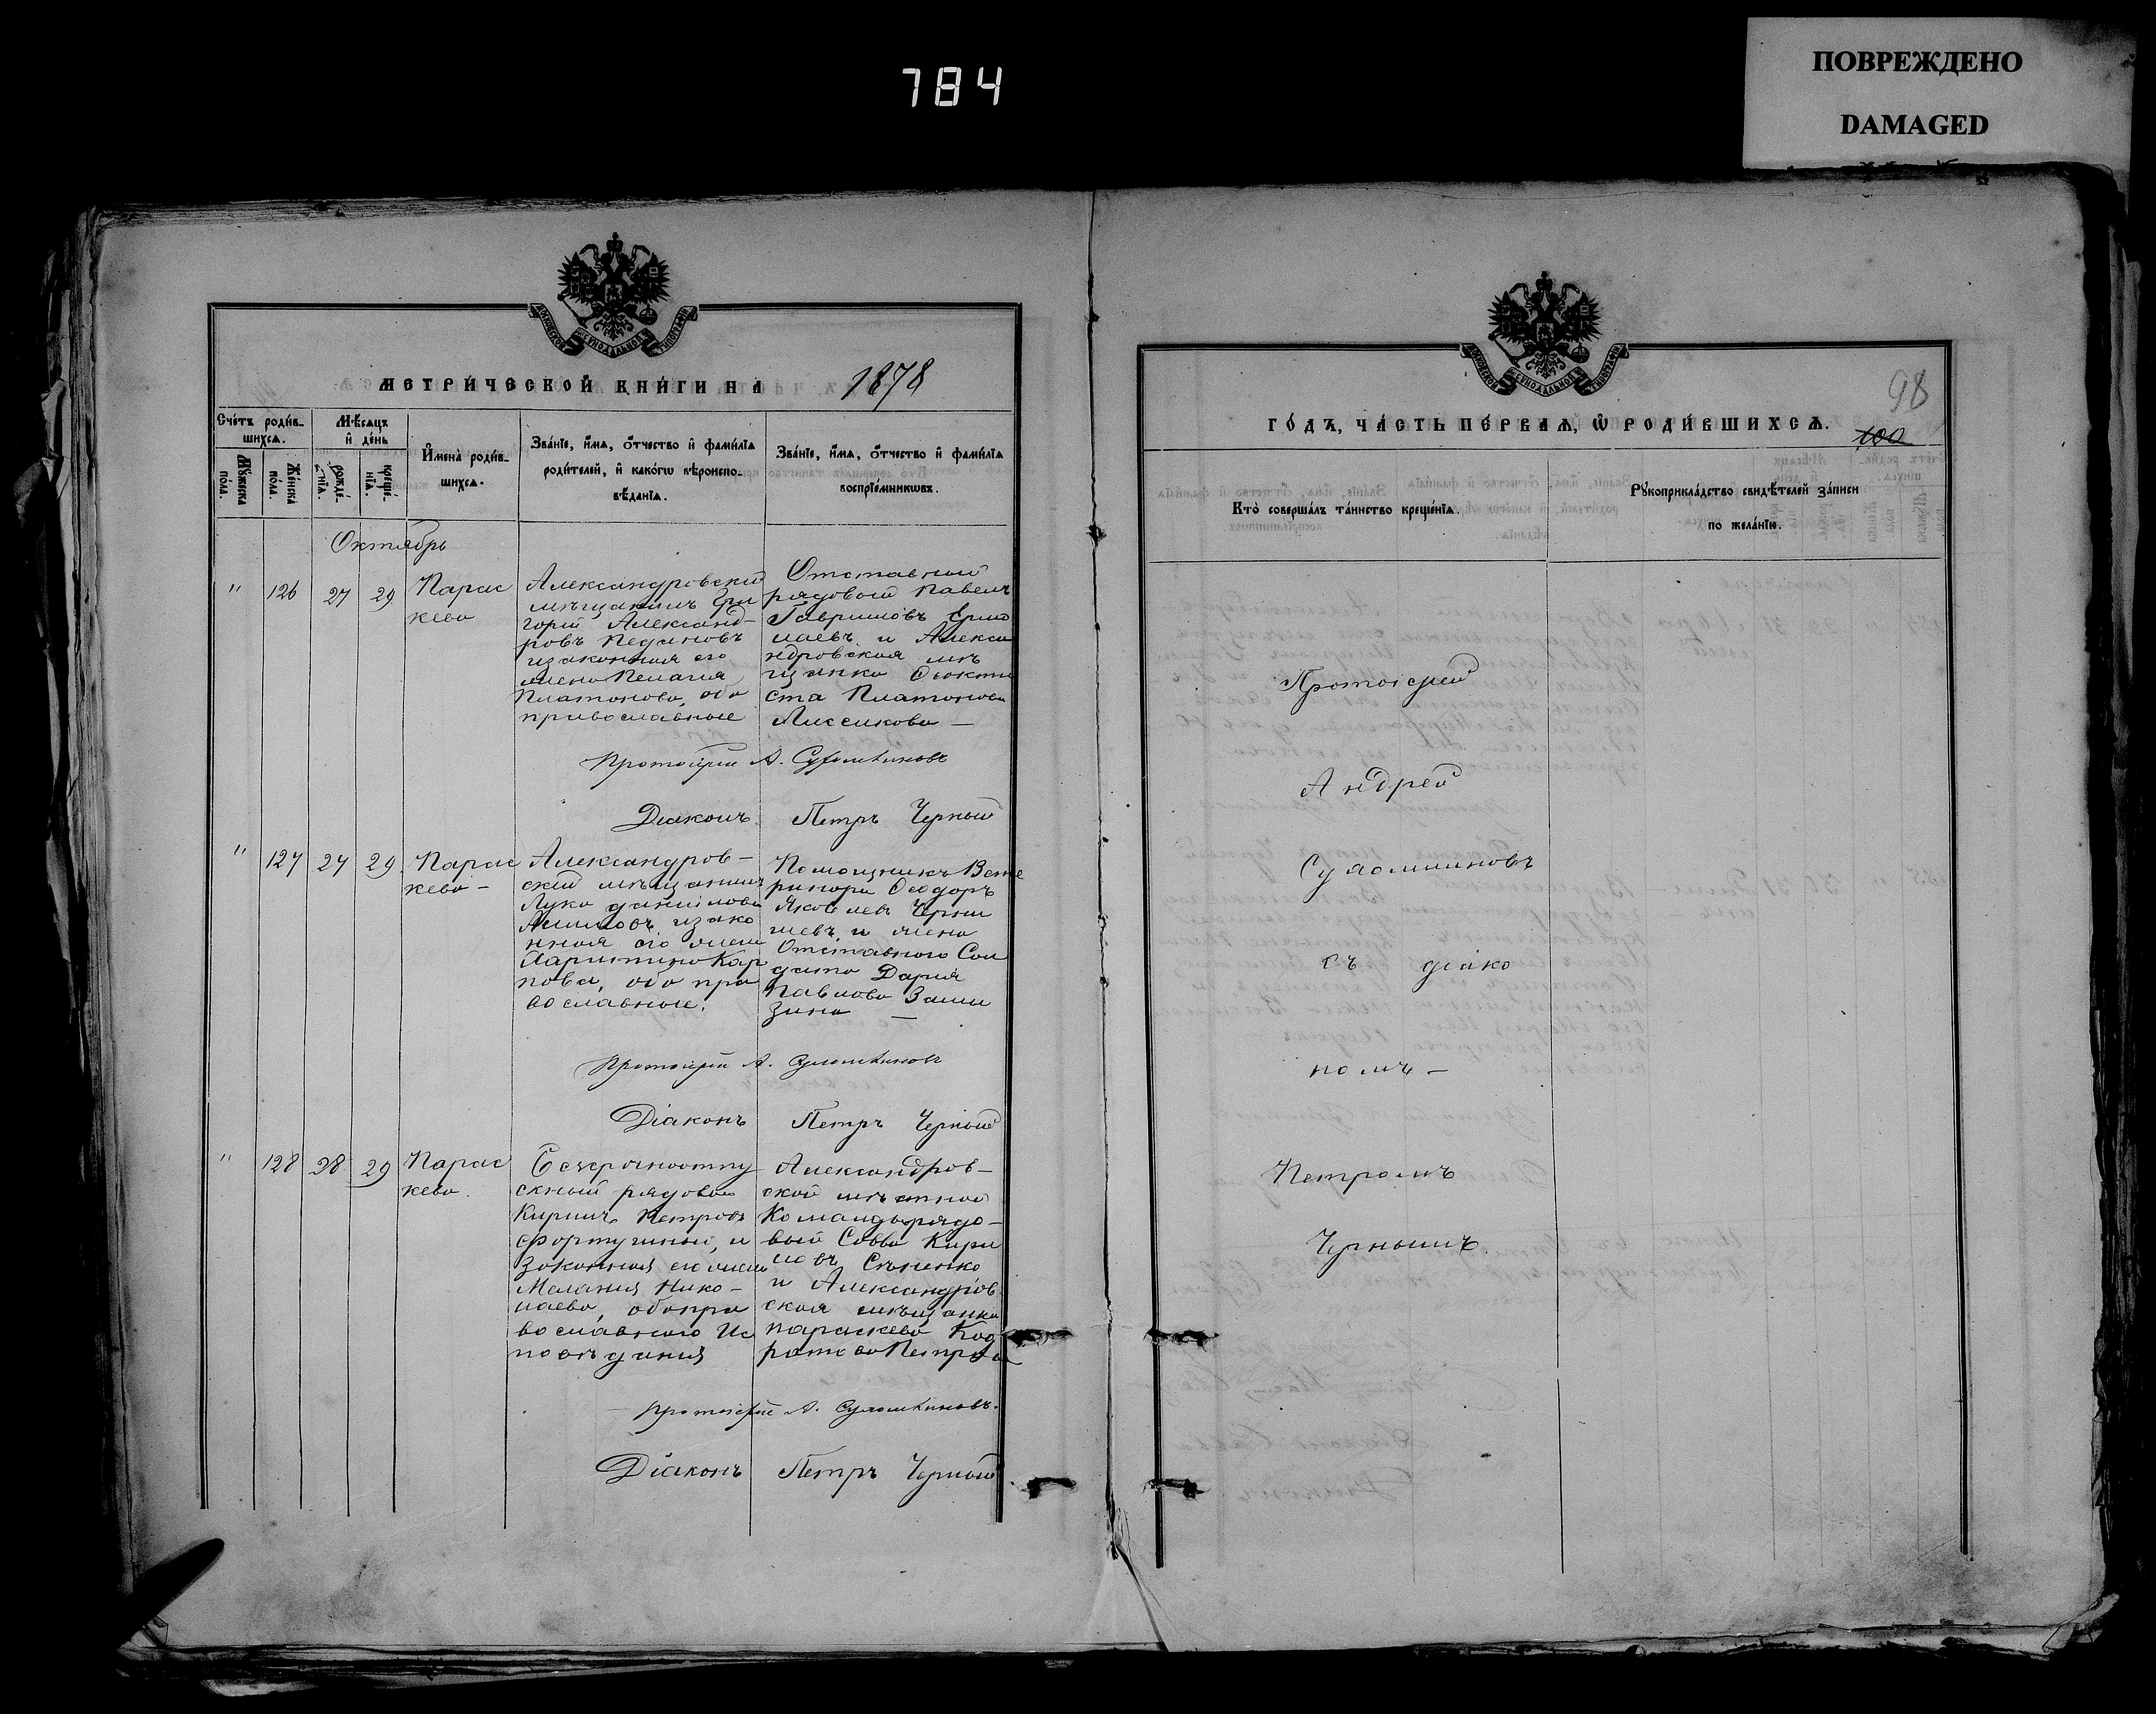 784
ПОВРЕЖДЕНО
DAMAGED
МЕТРИ́ЧЕСКОЙ КНИ́ГИ НА 1878
Сче́тъ роди́в-
шихсѧ.
Мѣ́сѧцъ
и҆ де́нь
Мꙋ́жеска по́ла.
Же́нска по́ла.
рожде́-нїѧ.
креще́-нїѧ.
И҆мена̀ роди́в-
шихсѧ.
Зва́нїе, и҆́мѧ, ѻ҆́тчество и҆ фами́лїѧ
роди́телей, и҆ како́гѡ вѣроиспо-
вѣ́данїѧ.
Зва́нїе, и҆́мѧ, ѻ҆́тчество и҆ фами́лїѧ
воспрїе́мникѡвъ.
Октябрь
" 126 27 29 Парас
кева
Александровскій
мѣщанинъ Гри
горій Александ-
ровъ
изаконная его
жена Пелагія
Платонова, оба
православные
Отставный
рядовый Павелъ
Гавриловъ Ермо
лаевъ и Алекса
ндровская мѣ
щанка Ѳеокти
ста Платонова
Протоіерей А.
Діаконъ Петръ Черный
" 127 27 29 Парас
кева -
Александров-
скій мѣщанинъ
Лука Даніиловъ
изако
нная его жена
Харитина Кар
пова, оба пра
вославные.
Помощникъ Вете
ринара Ѳеодоръ
Яковлевъ Черны
шевъ и жена
Отставного Сол
дата Дарія
Павлова
зина —
Протоіерей А.
Діаконъ Петръ Черный
" 128 28 29 Парас
кева.
Безсрочноотпу
скный рядовой
Кирилъ Петровъ
и
законная его жена
Меланія Нико-
лаева, оба пра
вославного Ис
повѣданія
Александров-
ской мѣстной
Команды рядо-
вый Савва Кири
ловъ
и Александров
ская мѣщанка
Параскева Код
ратова Петрова
Протоіерей А.
Діаконъ Петръ Черный
ГО́ДЪ, ЧА́СТЬ ПЕ́РВАѦ, Ѡ҆ РОДИ́ВШИХСѦ.
98
100
Кто̀ соверша́лъ та́инство креще́нїѧ.
Рꙋкоприкла́дство свидѣ́телей за́писи
по жела́нїю.
Протоіерей
Андрей
съ діако
номъ -
Петромъ
Чернымъ.